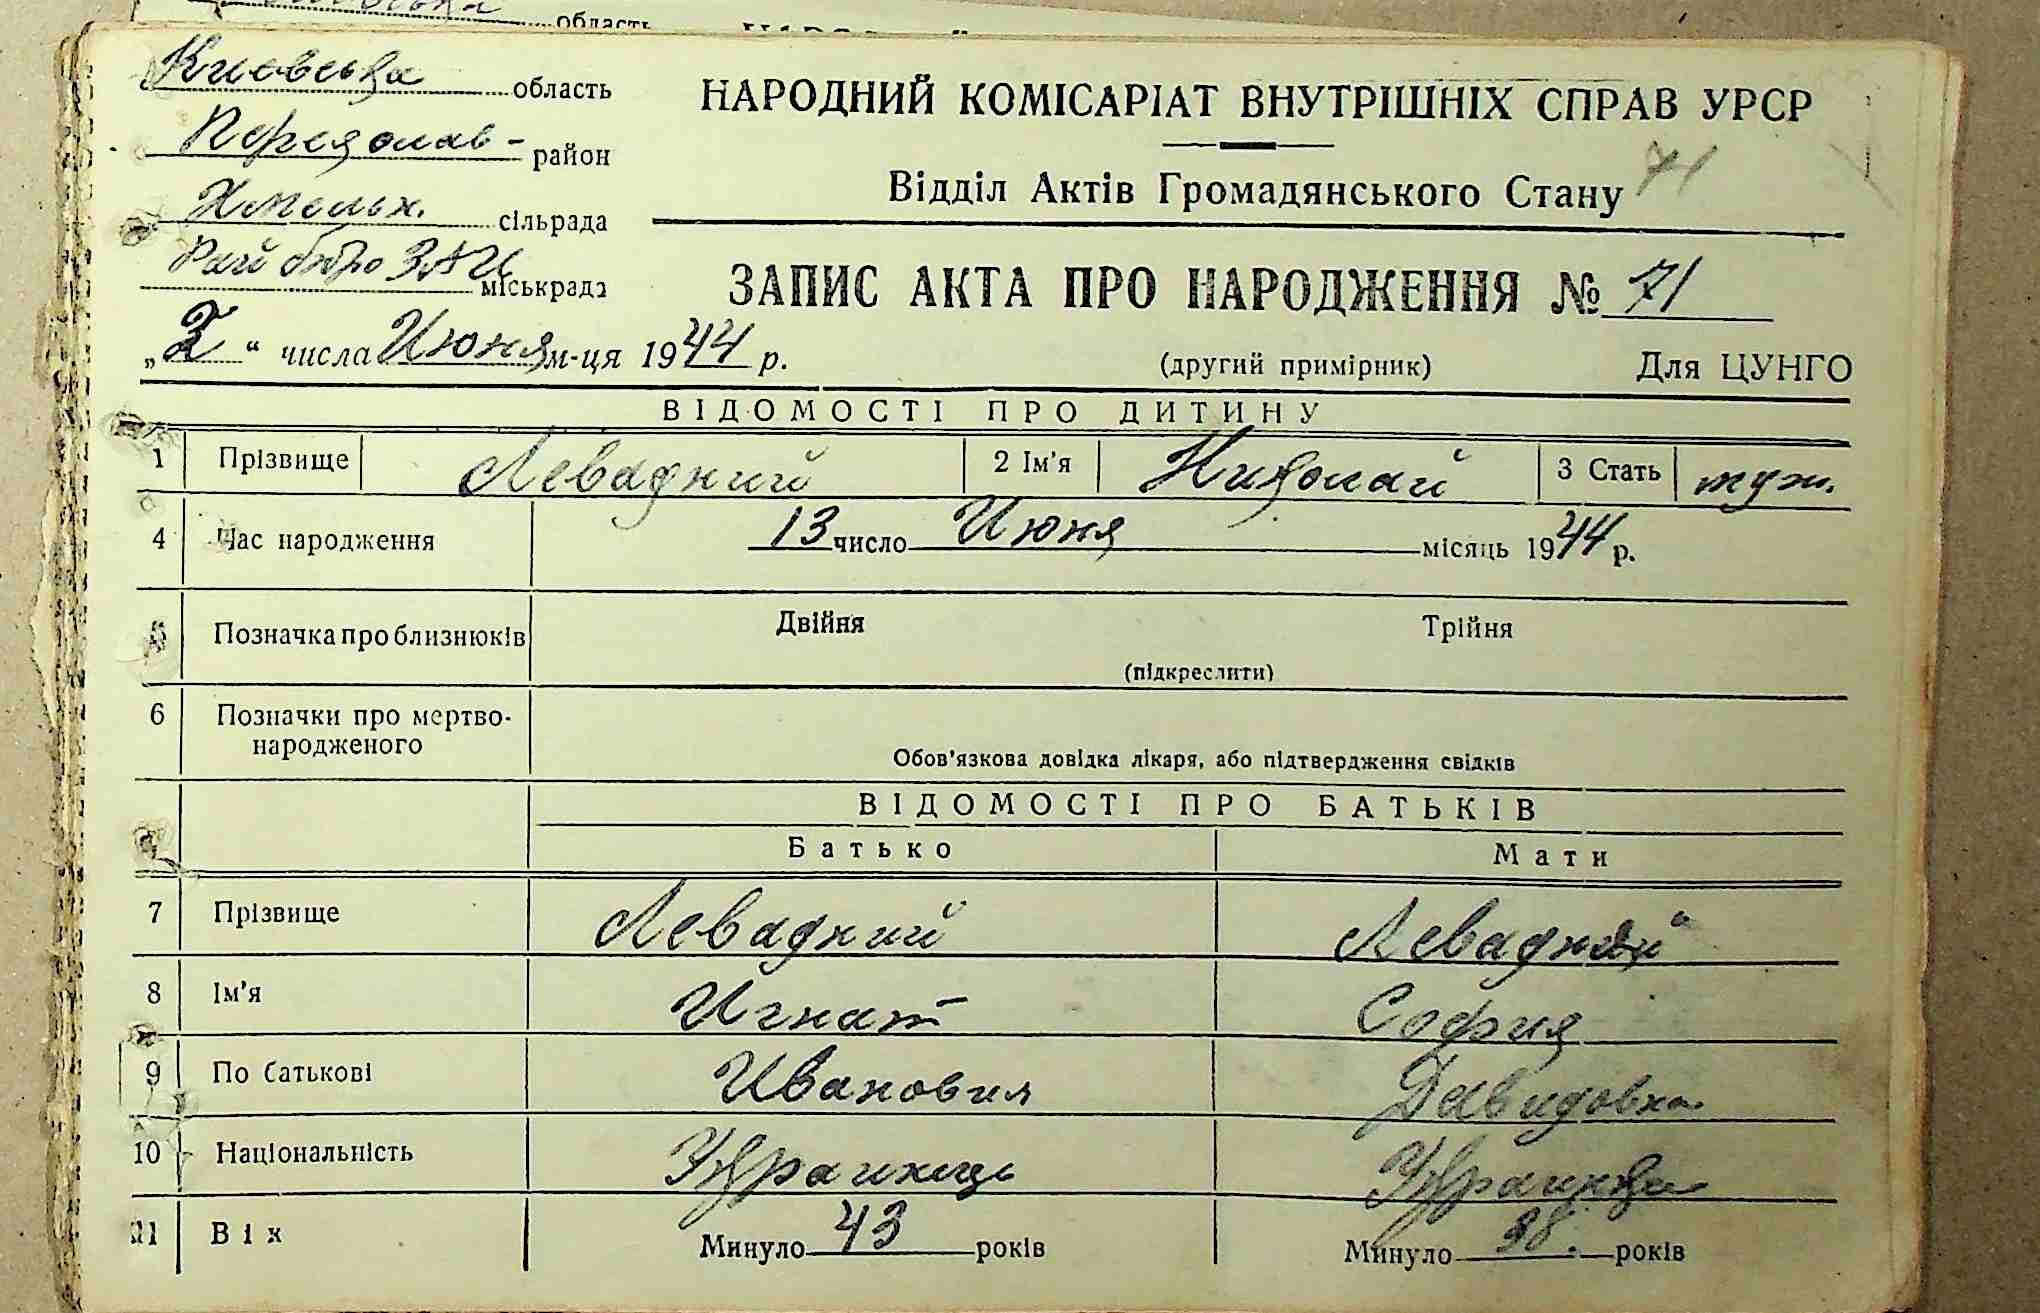 область
Киевська область
НАРОДНИЙ КОМІСАРІАТ ВНУТРІШНІХ СПРАВ УРСР
Переяслав- район
Відділ Актів Громадянського Стану 71
Хмельн. сільрада
Рай бюро ЗАЦС міськрада
ЗАПИС АКТА ПРО НАРОДЖЕННЯ № 71
„2“ числа Июня м-ця 1944 р.
(другий примірник) Для ЦУНГО
ВІДОМОСТІ ПРО ДИТИНУ
1 Прізвище Левадний 2 Ім'я Николай 3 Стать муж.
4 Час народження 13 число Июня місяць 1944 р.
5 Позначка про близнюків Двійня Трійня
(підкреслити)
6 Позначки про мертво-
народженого
Обов'язкова довідка лікаря, або підтвердження свідків
ВІДОМОСТІ ПРО БАТЬКІВ
Батько Мати
7 Прізвище Левадний Левадняя
8 Ім'я Игнат София
9 По батькові Иванович Давидовна
10 Національність Украинець Украинка
11 Вік Минуло 43 років Минуло 38. років